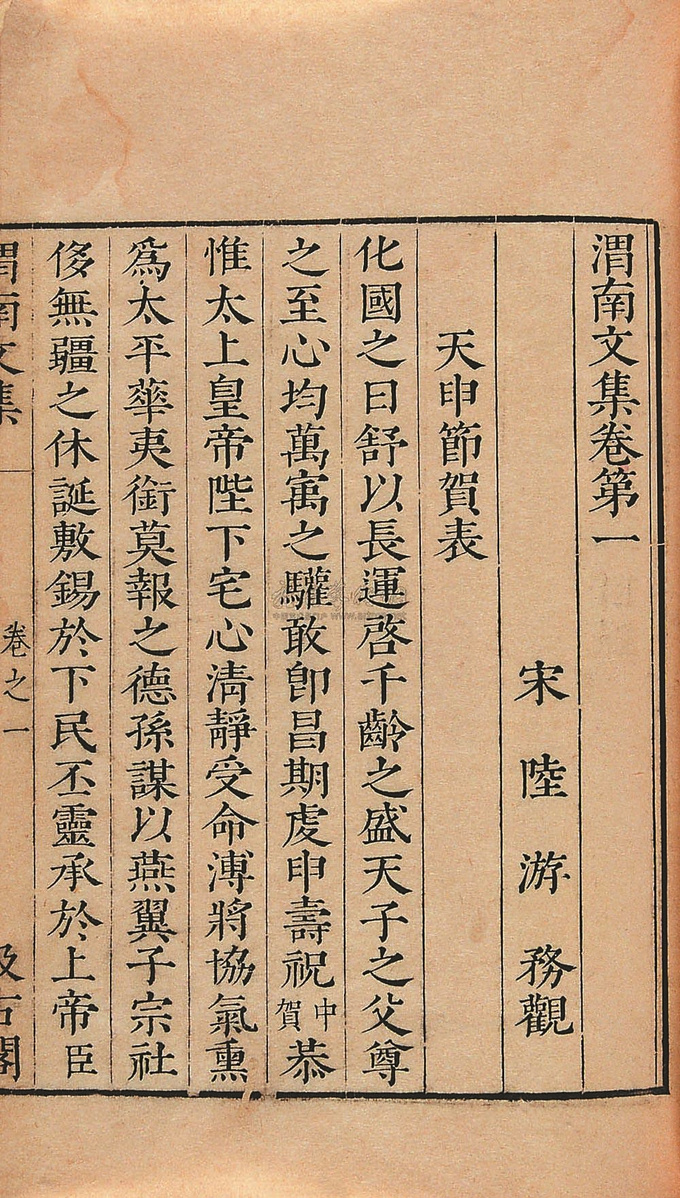 渭南文集卷第一
宋陸游務觀
天申節賀表
化國之日舒以長運啓千齡之盛天子之父尊
之至心均萬㝢之驩敢卽昌期虔申壽祝中賀恭
惟太上皇帝陛下宅心清靜受命溥將協氣熏
爲太平華夷銜莫報之德孫謀以燕翼子宗社
侈無疆之休誕敷錫於下民丕靈承於上帝臣
渭南文集 卷之一 汲古閣